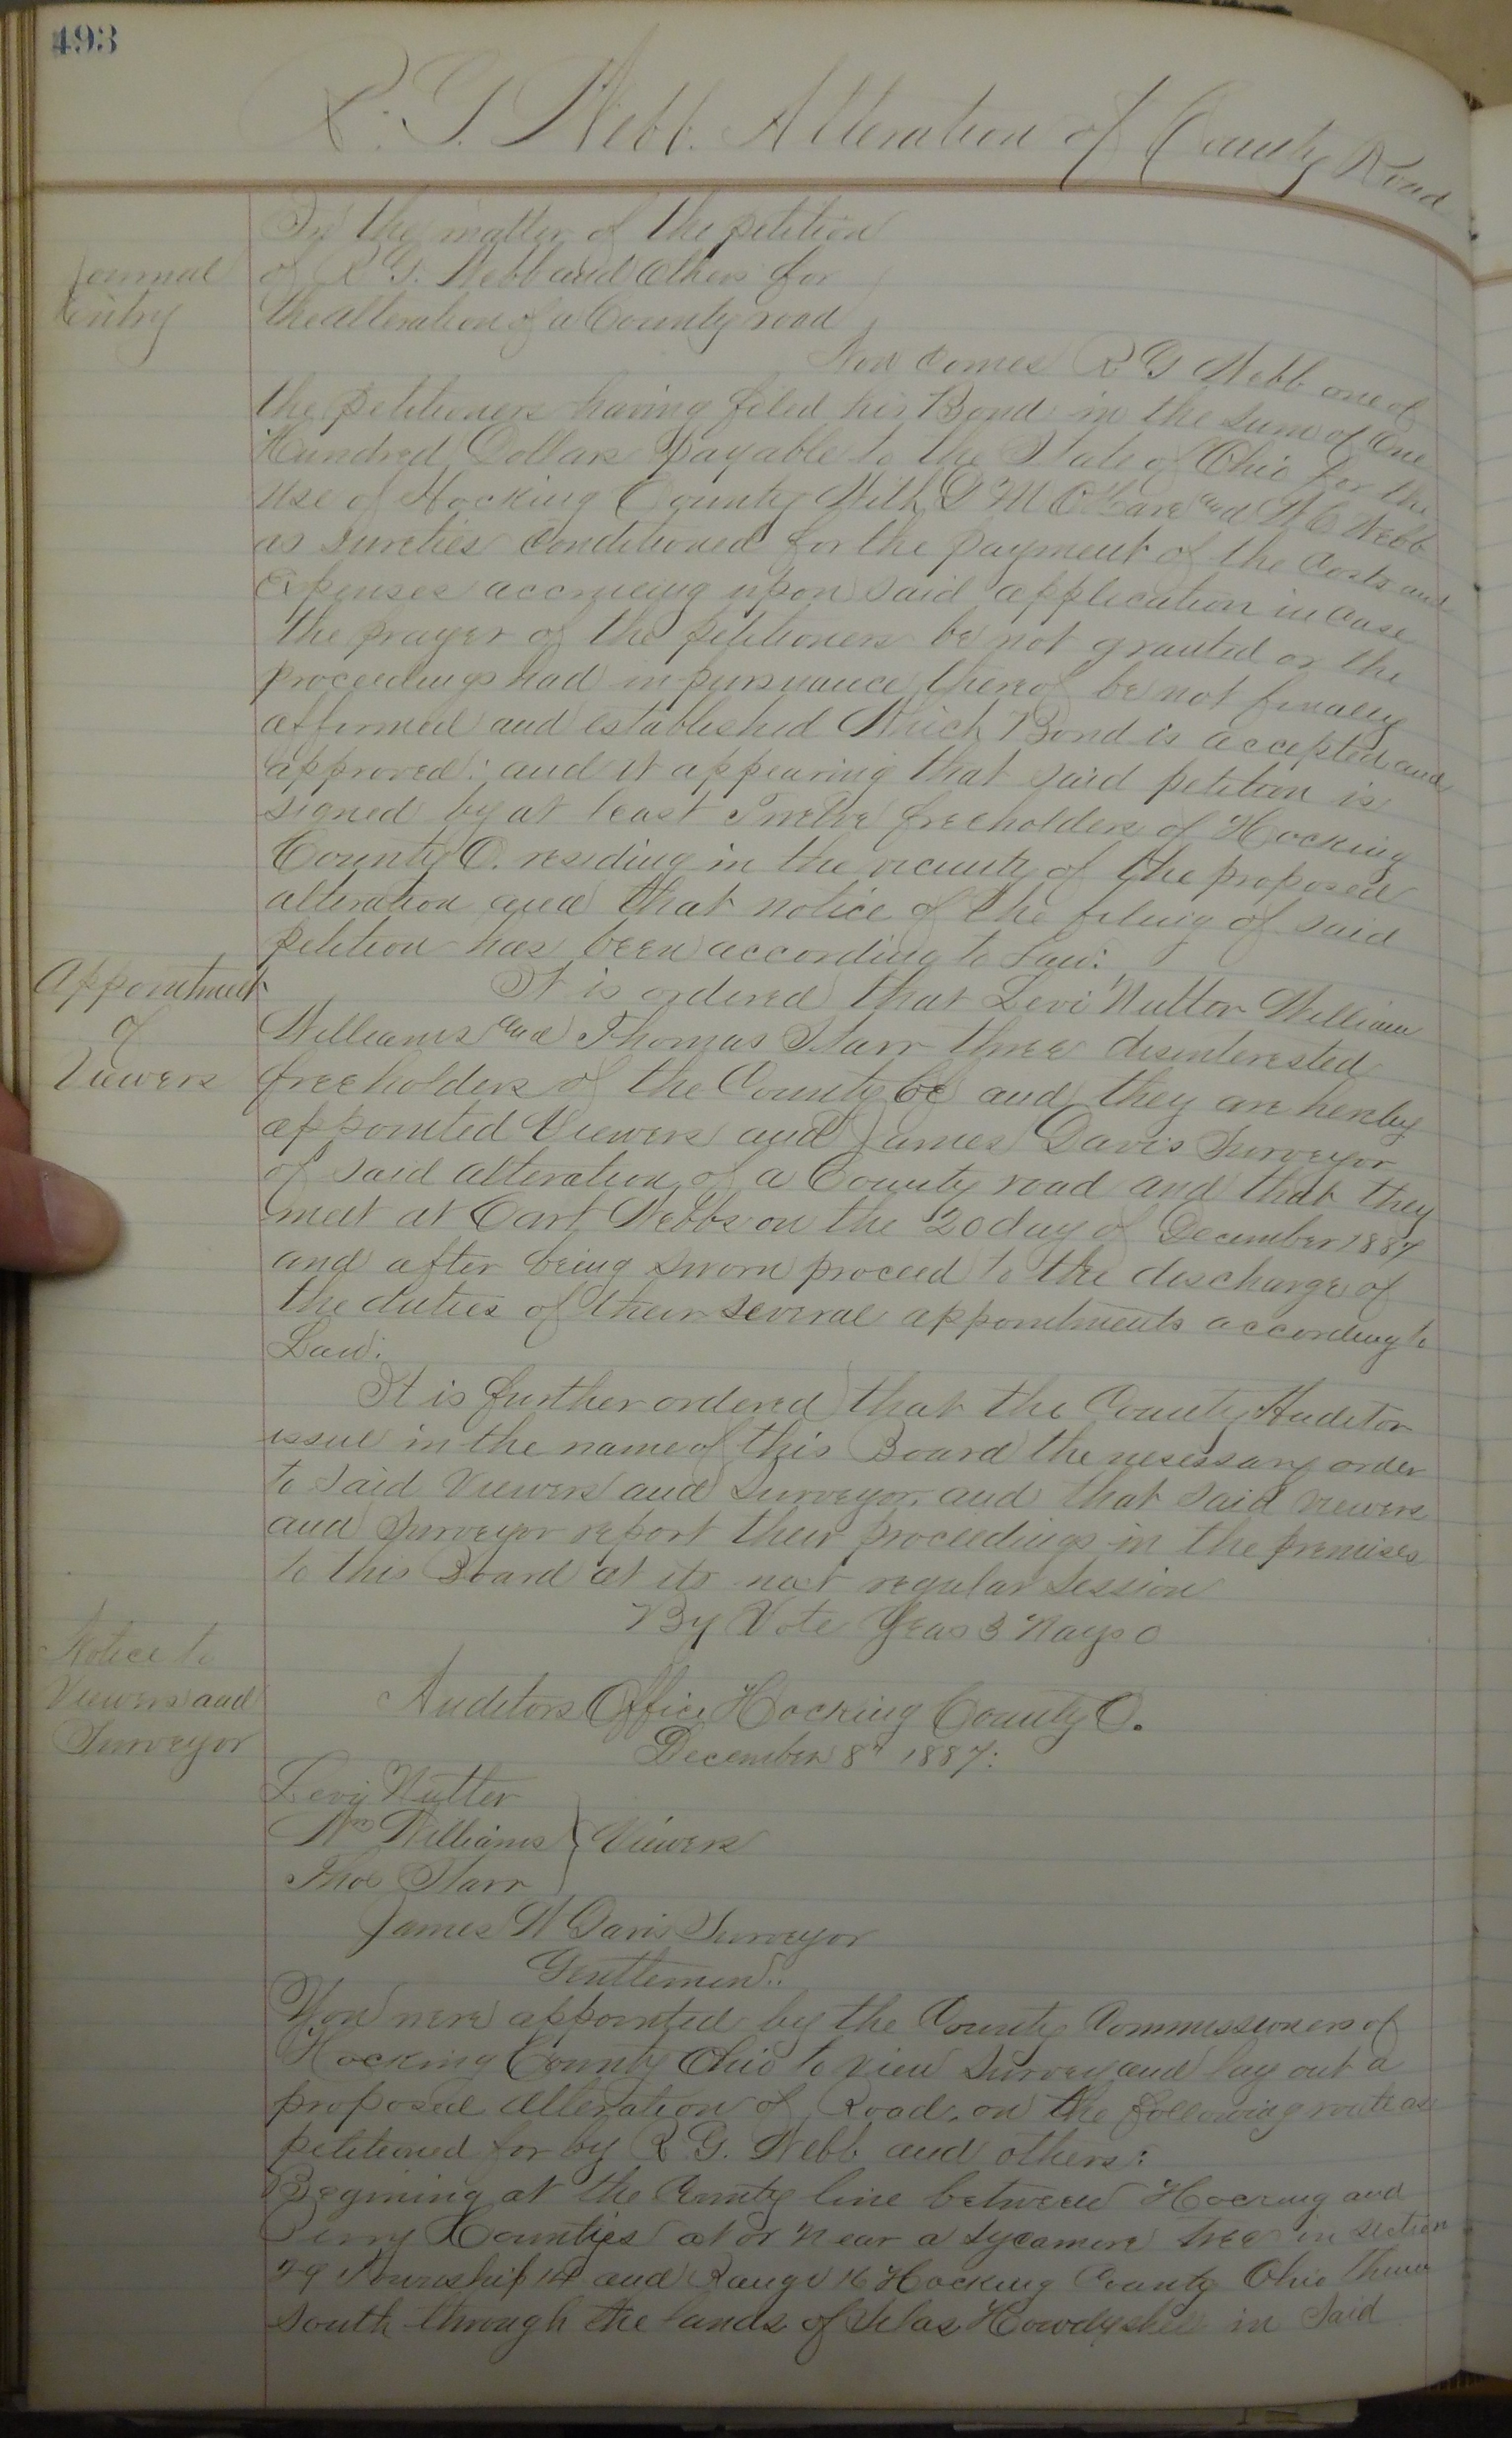 493
R. G. Webb. Alteration of County Road
Journal
Entry
In the matter of the petition
of R G. Webb and others for
the alteration of a County road
Now comes R G Webb one of
the petitioners having filed his Bond in the sum of One
Hundred Dollars payable to the State of Ohio for the
use of Hocking County With and W C Webb
as Sureties conditioned for the payment of the Costs and
Expenses accruing upon said application in case
the prayer of the petitioners be not granted or the
proceedings had in pursuance thereof be not finally
affirmed and established Which Bond is accepted and
approved: and it appearing that said petition is
signed by at least Twelve freeholders of Hocking
County O. residing in the vicinity of the proposed
alteration and that notice of the filing of said
petition has been according to Law:
Appointment
of
Viewers
It is ordered that Levi Nutter William
Williams and Thomas Starr three disinterested
freeholders of the County be and they are hereby
appointed Viewers and James Davis Surveyor
of said alteration of a County road and that they
meet at Cart Webbs on the 20 day of December 1887
and after being sworn proceed to the discharge of
the duties of their several appointments according to
Law:
It is further ordered that the County Auditor
issue in the name of this Board the nesessary order
to said Viewers and Surveyor and that said viewers
and Surveyor report their proceedings in the premises
to this Board at its next regular Session
By Vote Yeas 3 Nays 0
Notice to
Viewers and
Surveyor
Auditors Office Hocking County O.
December 8" 1887:
Levi Nutter
Wm Williams } Viewers
Thos Starr
James W Davis Surveyor
Gentlemen:
You were appointed by the County Commissioners of
Hocking County Ohio to view Survey and lay out a
proposed Alteration of Road, on the following route as
petitioned for by R G. Webb and others:
Begining at the County line between Hocking and
Perry Counties at or near a Sycamore tree in section
Township 14 and Range 16 Hocking County Ohio thence
South through the lands of Silas Howdyshell in Said